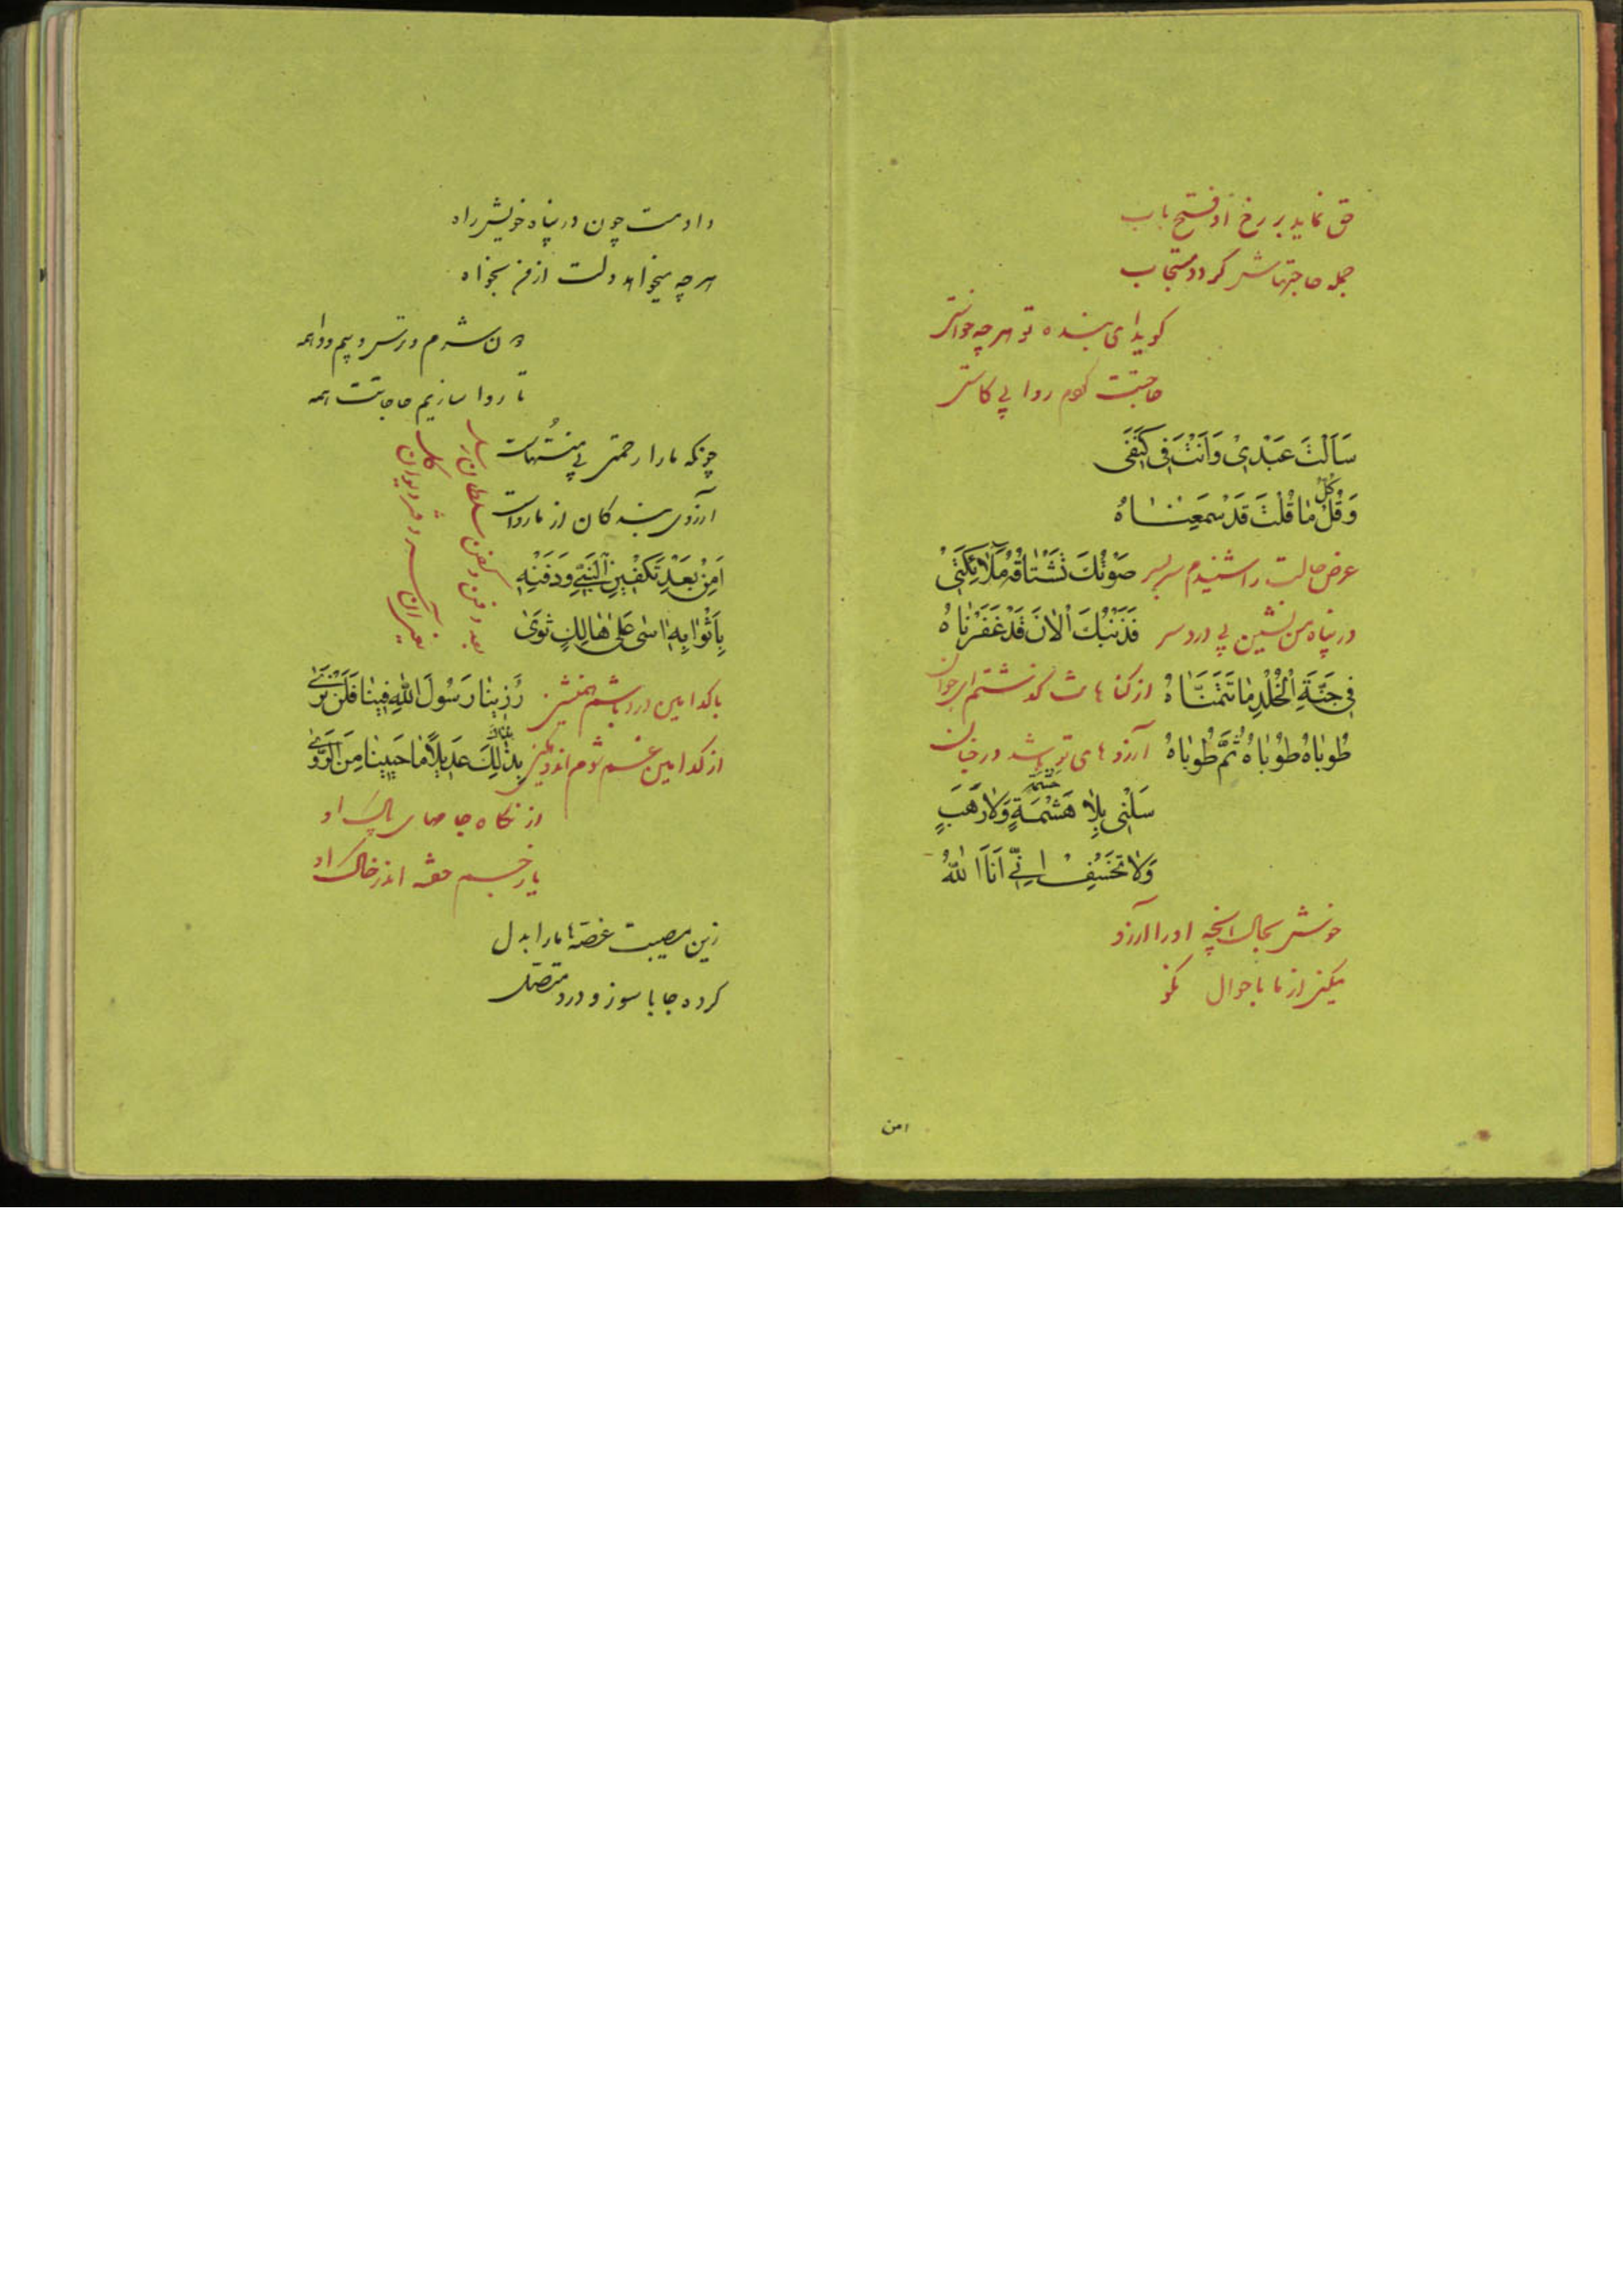 حق نماید بر رخ او فتح باب
جمله حاجتهاش گردد مستجاب
گوید ای بنده تو هر چه خواستی
حاجتت کردم روا بی کاستی
سَاَلْتَ عَبْدی وَاَنْتَ فی کَنَفی
وَقُلْ کُلُّ مٰا قُلْتَ قَدْ سَمِعْنٰاهُ
عرض حالت را شنیدم سر بسر صَوْتُكَ تَشْتٰاقُهُ مَلاٰئِکَتی
در پناه من نشین بی درد سر فَذَنْبُكَ اْلاٰنَ قَدْ غَفَرْنٰاهُ
فی جَنَّةِ الْخُلْدِ مٰا تَمَنّٰاهُ از گناهانت گذشتم ای جوان
طُوبٰاهُ طُوبٰاهُ ثُمَّ طُوبٰاهُ آرزوهای تو باشد در جنان
سَلْنی بِلاٰ هَشْمَةٍ وَلاٰ رَهَبٍ
حشمة
وَلاٰ تَخَفْ اِنّی اَنَا اللّٰهُ
خوش بحال آنچه او را آرزو
میکند از ما باحوال نکو
امن
دادمت چون در پناه خویش راه
هر چه میخواهد دلت از من بخواه
تا روا سازیم حاجاتت همه
چونکه ما را رحمتی بی منتهاست
آرزوی بندگان از ما رواست
اَمِنْ بَعْدِ تَکْفینِ النَّبِیِّ وَدَفْنِهِ
بِاَثْوٰابِهِ اٰسٰی عَلٰی هٰالِكٍ ثَوٰی
بعد دفن و کفن سلطان رسل
یعنی آن سر دفتر دیوان کل
با کدامین درد باشم همنشین رُزینٰا رَسُولَ اللّٰهِ فینٰا فَلَنْ نَرٰی
از کدامین غم شوم اندوهگین بِذٰلِكَ عَدیلاً مٰا حَیینٰا مِنَ الْوَرٰی
از نگاه جامهای پاک او
یا ز جسم خفته اندر خاک او
زین مصیبت غصه ها ما را بدل
کرده جا با سوز و درد متصل